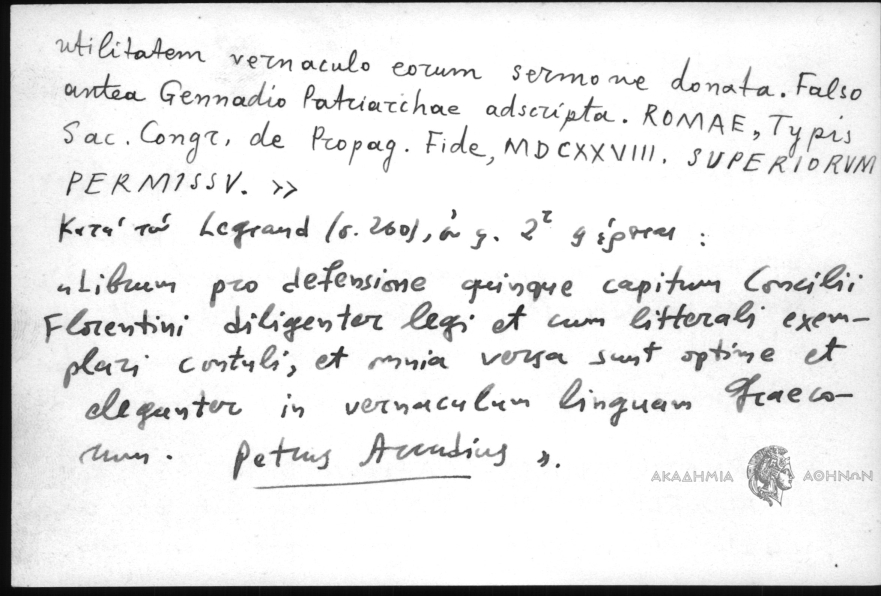 utilitatem vernaculo eorum sermone donata. Falso
antea Gennadio Patriarchae adscripta. ROMAE, Typis
Sac. Congr. de Propag. Fide, MDCXXVIII. SUPERIORVM
PERMISSV. »
Κατά τόν Legrand (σ. 260), ἀ φ. 2ʳ φέρεται :
«Librum pro defensione quinque capitum Concilii
Florentini diligenter legi et cum litterali exem-
plari contuli, et omnia versa sunt optime et
eleganter in vernaculum linguam Graeco-
rum. Petrus Arcudius ».
ΑΚΑΔΗΜΙΑ ΑΘΗΝΩΝ